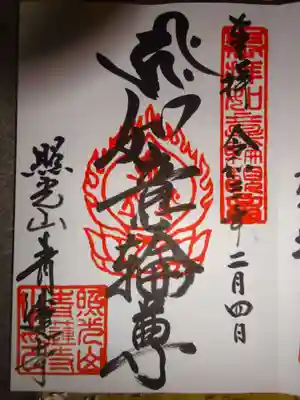 奉拝 令和三年二月四日
如意輪尊
照光山青蓮寺
照光山
青蓮寺